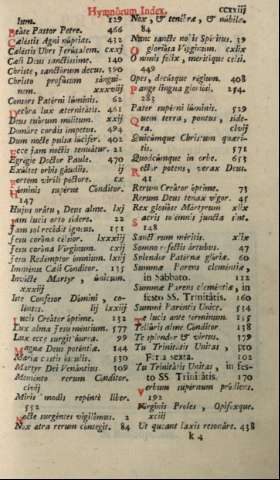 Hymnorum Index. ccxxiij
lum. 129
Beate Pastor Petre. 466
Cælestis Agni núptias. 432
Cælestis Urbs Jerúsalem. cxxj
Cæli Deus sanctíssime. 140
Christe, sanctórum decus. 390
Christo profúsum sánguinem.
xxxviij
Consors Patérni lúminis. 62
Crudélis
Decora lux æternitátis. 461
Deus tuórum mílitum. xxij
Domáre cordis ímpetus. 494
Dum nocte pulsa lúcifer. 401
Ecce jam noctis tenuátur. 21
Egregie Doctor Paule. 470
Exúltet orbis gáudiis. ij
Fortem viríli péctore. cx
Hóminis supérne Cónditor.
147
Hujus obtentu, Deus alme. lxj
Jam lucis orto sídere. 22
Jam sol recédit ígneus. 151
Jesu coróna celsior. lxxxiij
Jesu coróna Vírginum. cxij
Jesu Redemptor ómnium. lxij
Immense Cæli Cónditor. 135
Invícte Martyr, únicum.
xxxiij
Iste Conféssor Dómini, colentes.
lj lxxij
Lucis Creátor óptime. 132
Lux alma Jesu méntium. 577
Lux ecce surgit áurea. 99
Magnæ Deus poténtiæ. 144
María castis óculis. 530
Martyr Dei Venántius 309
Meménto rerum Cónditor.
clvij
Miris modis repénte liber.
532
Nocte surgéntes vigilémus. 2
Nox atra rerum cóntegit. 84
Nox, & ténebræ, & núbila.
84
Nunc sancte nobis Spíritus. 39
O gloriósa Vírginum. clix
O nimis felix, meritíque celsi.
448
Opes, decúsque régium. 408
Pange lingua gloriósi. 254.
283
Pater supérni lúminis. 529
Quem terra, pontus, sídera.
clvij
Quicúmque Christum quǽritis.
571
Quodcúmque in orbe. 653
Rector potens, verax Deus.
41
Rerum Creátor óptime. 73
Rerum Deus tenax vigor. 45
Rex glorióse Mártyrum xlix
Sacris solémnis juncta sint.
148
Sanctórum méritis. xlix
Somno reféctis ártubus. 47
Spléndor Patérnæ glóriæ. 60
Summæ Parens cleméntiæ,
in Sabbato. 112
Summæ Parens cleméntiæ, in
festo SS. Trinitátis. 160
Summi Paréntis Unice. 534
Te lucis ante términum. 155
Tellúris alme Cónditor. 138
Te spléndor & virtus. 379
Tu Trinitátis Unitas, pro
Feria sexta. 102
Tu Trinitátis Unitas, in festo
SS. Trinitátis. 160
Verbum supérnum pródiens.
192
Vírginis Proles, Opiféxque.
xciij
Ut queant laxis resonáre. 438
k 4